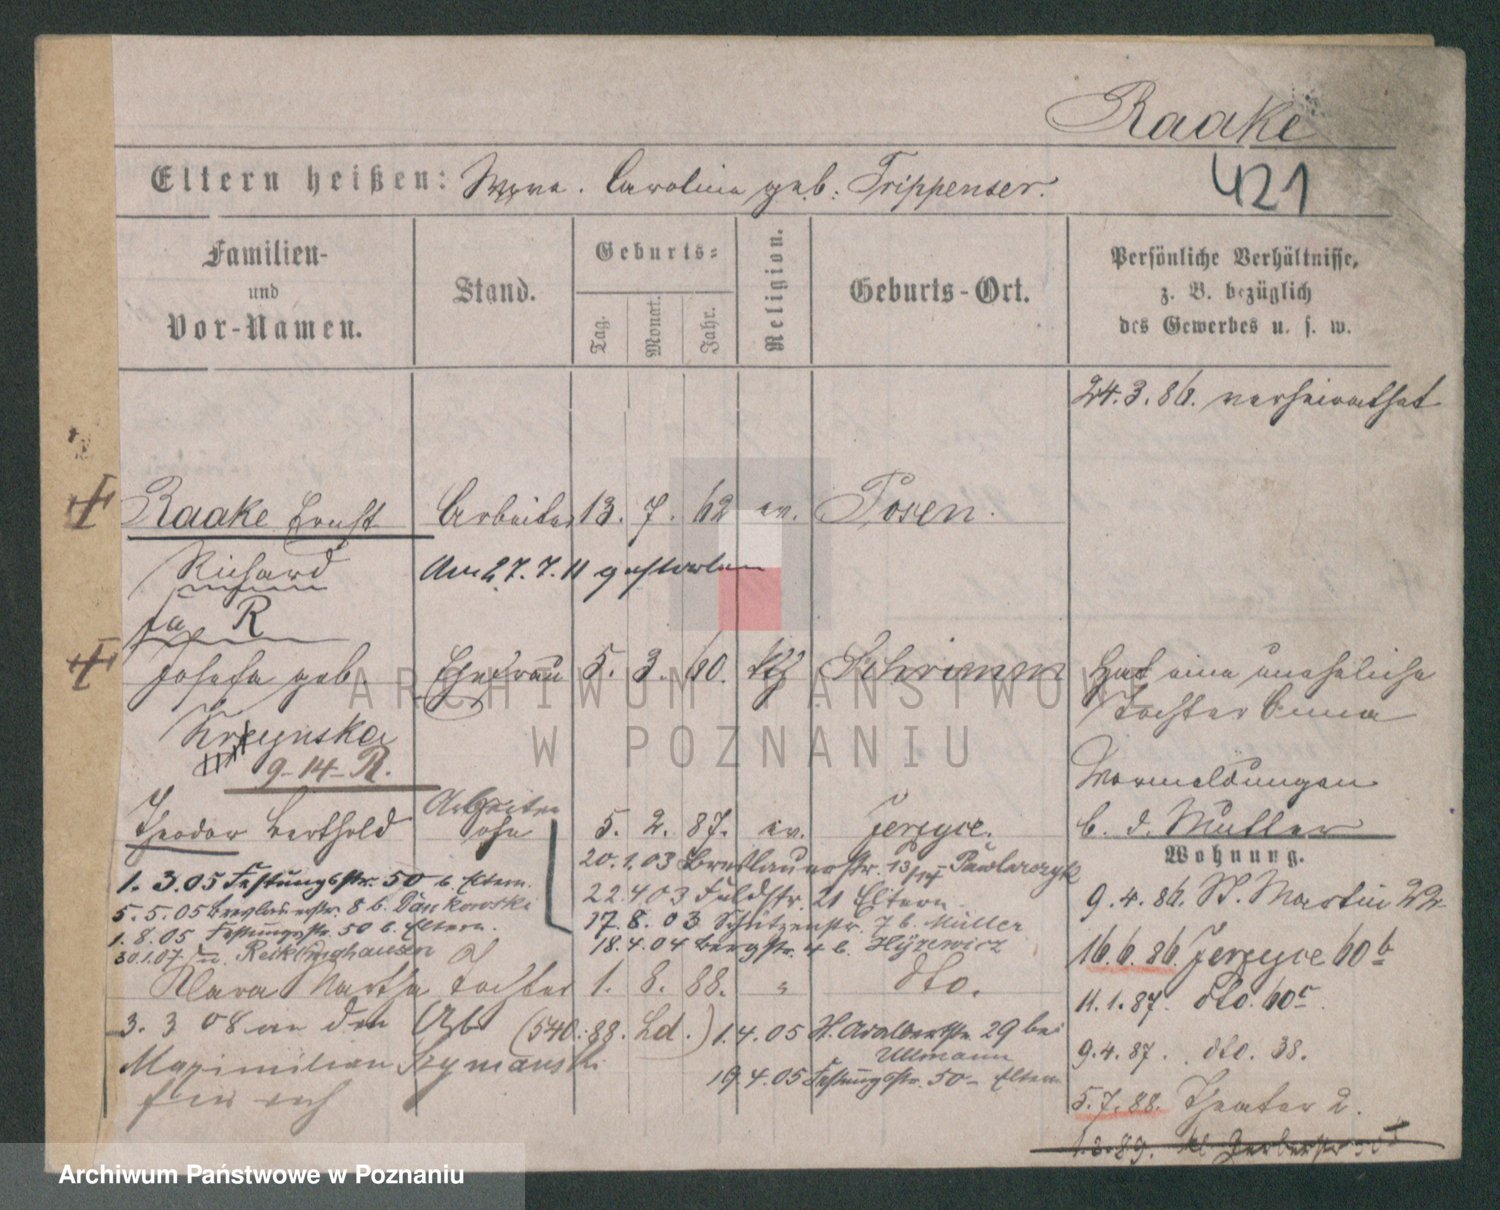 Raake
421
Eltern heißen: Carolina geb. Trippenser.
Familien-
und
Vor-Namen.
Stand.
Geburts-
Tag.
Monat.
Jahr.
Religion.
Geburts-Ort.
Persönliche Verhältnisse,
z. B. bezüglich
des Gewerbes u. s. w.
24.3.86. verheirathet
Raake Ernst Arbeiter 13. 7. 62 ev. Posen.
Richard Am 27.7.11 gestorben
R
Josefa geb. Ehefrau 5. 3. 60. kth Schrimm Hat eine uneheliche
Tochter Anna
9-14-R.
Vormeldungen
b. d. Müller
Theodor Berthold Arbeiter Sohn 5. 2. 87. ev. Jerzyce.
Wohnung.
20.1.03 Breslauerstr. 13/14 - Pawlarczyk
1.3.05 Festungsstr. 50 b. Eltern.
22.4.03 Feldstr. 21 Eltern.
9.4.86. St. Martin 22.
5.5.05 Breslauerstr. 8 b. Dankowski
17.8.03 Schützenstr. 7 b. Müller
1.8.05 Festungsstr. 50 b. Eltern.
18.4.04 Bergstr. 4 b. Hyzewicz
16.6.86. Jerzyce 60 b
30.1.07 n. Recklinghausen
Klara Martha Tochter 1. 8. 88. " dto.
11.1.87. dto. 60c.
3. 3 08 an den Arb. (540:88. Ld.) 1.4.05 St. Adalbertstr. 29 bei
Ullmann
9.4.87. dto. 38.
Maximilian Szymanski
19.4.05 Festungsstr. 50 - Eltern
5.7.88. Theater 2.
1.3.89. kl. Gerberstr
ARCHIWUM PAŃSTWOWE
W POZNANIU
Archiwum Państwowe w Poznaniu